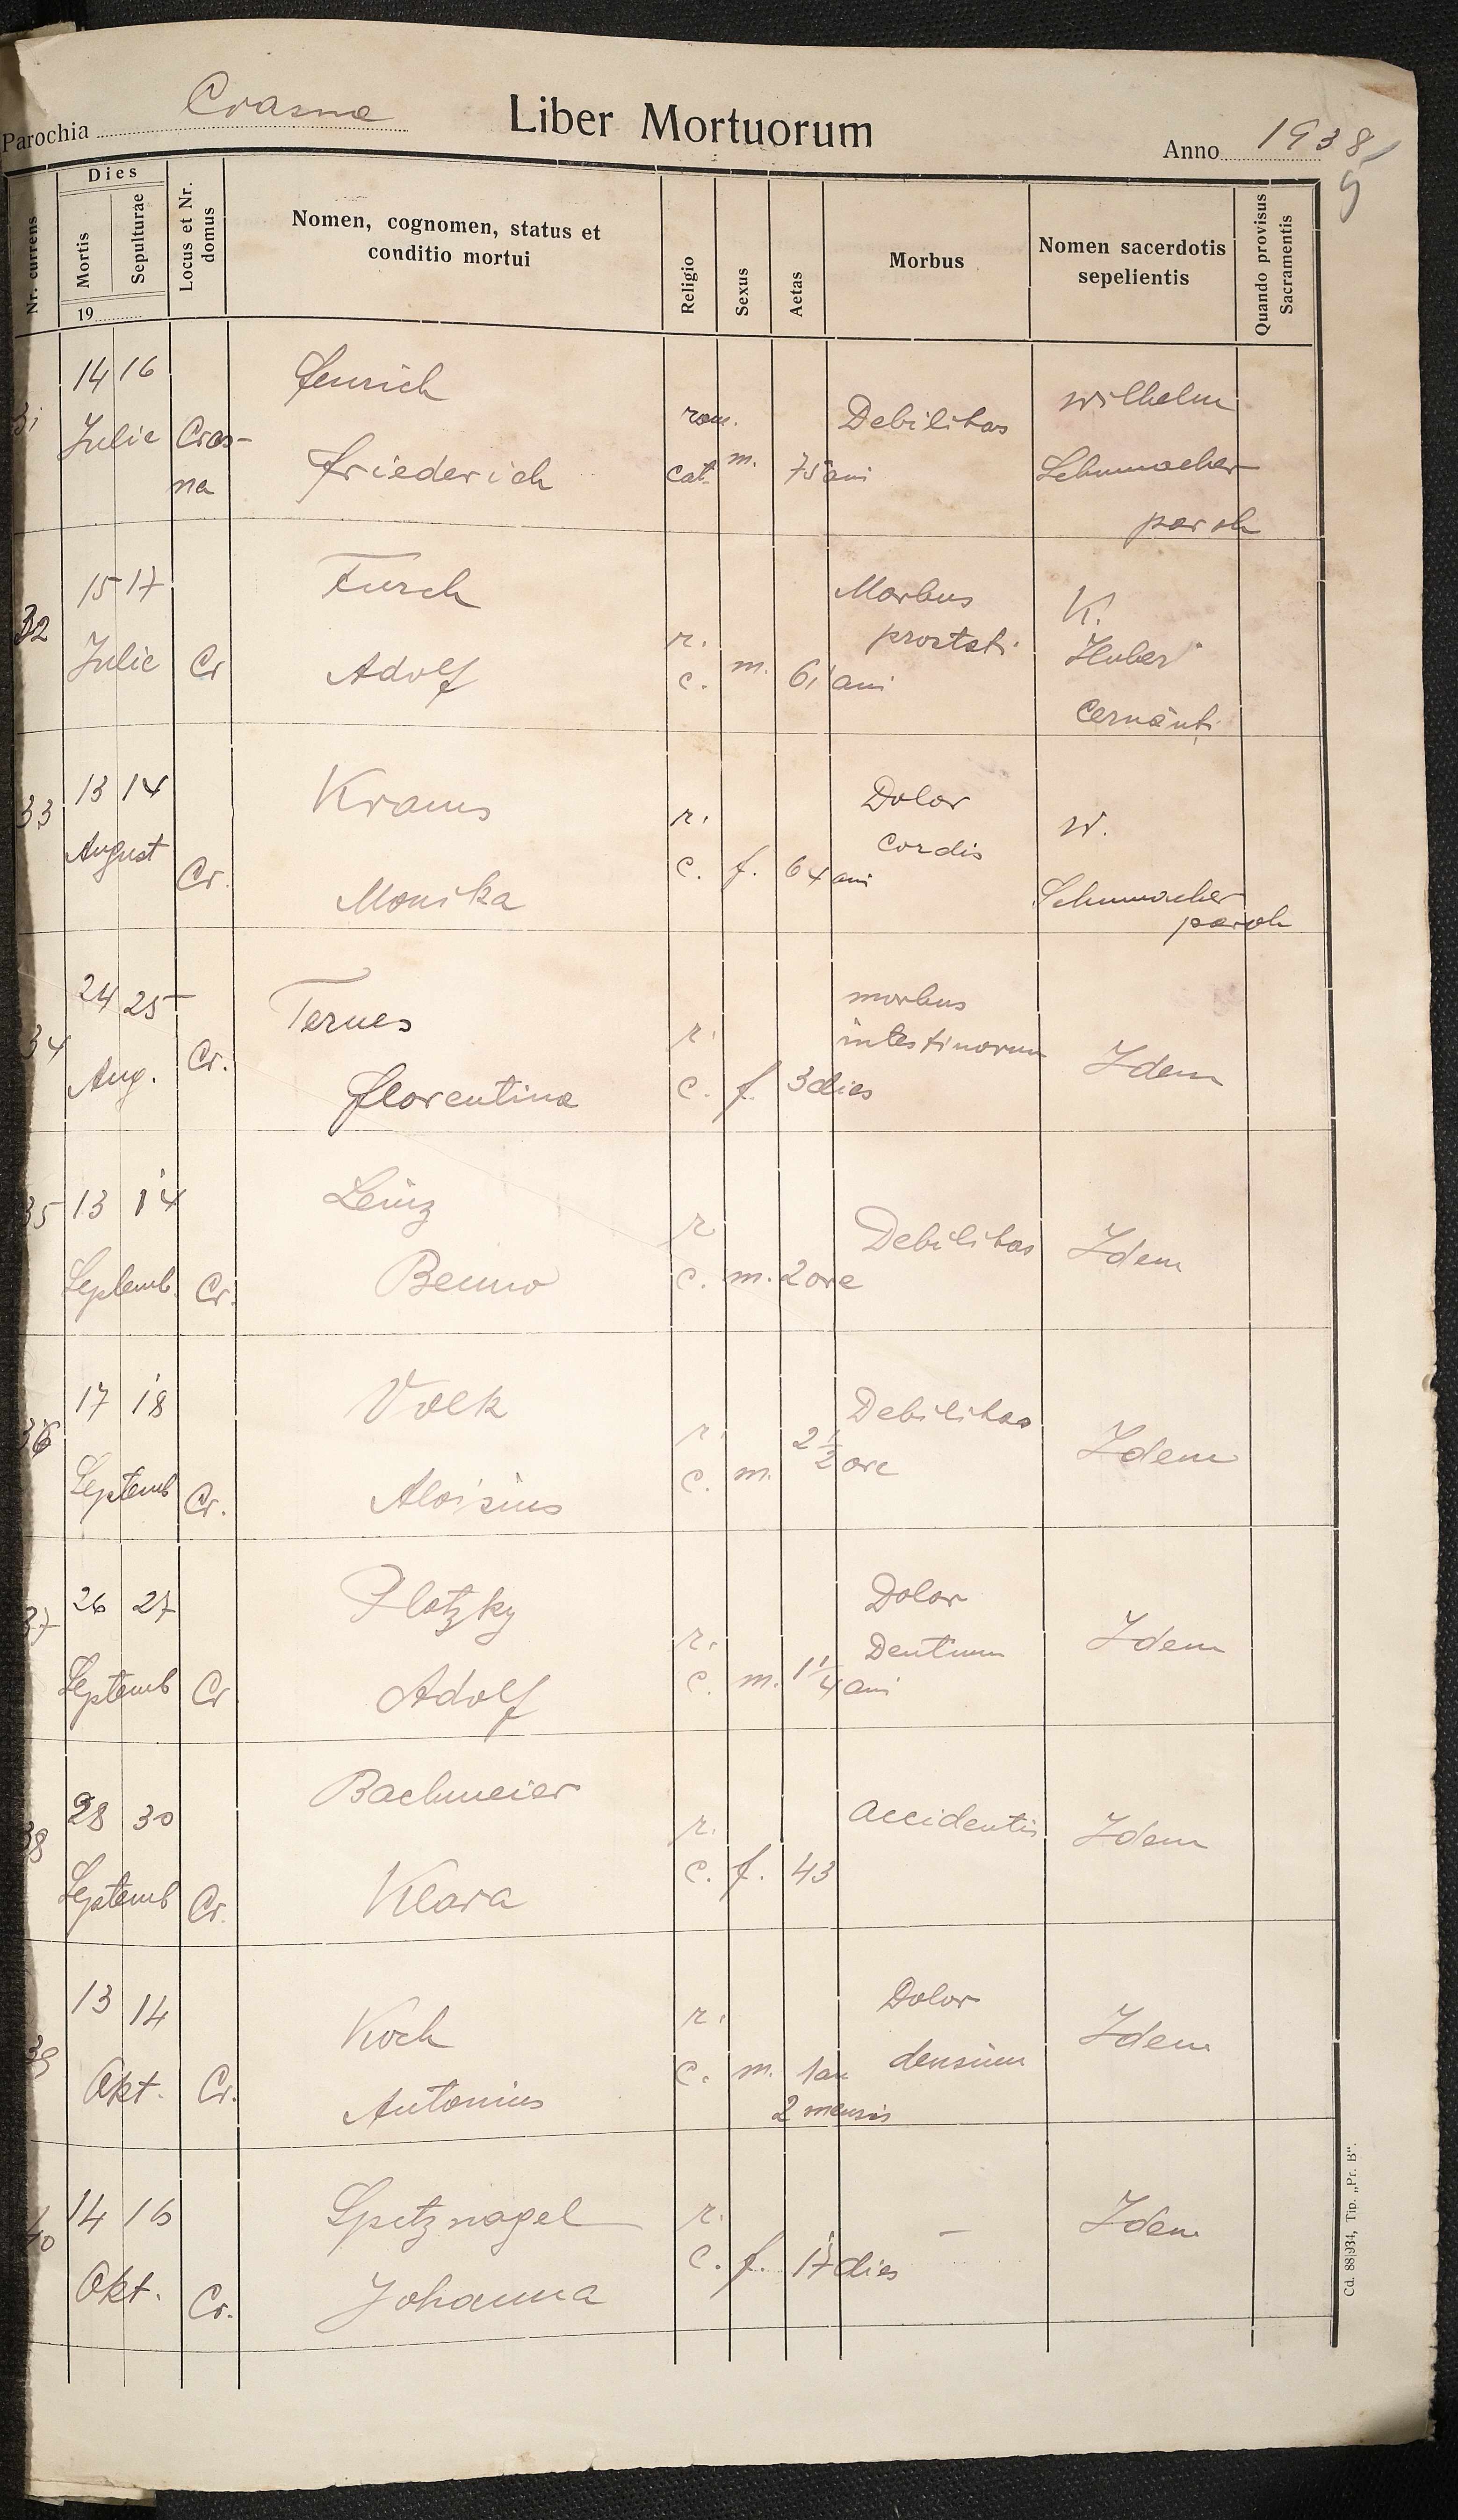 Parochia Crasna Liber Mortuorum Anno 1938
9
Nr. currens
Dies
Mortis
Sepulturae
19
Locus et Nr. domus
Nomen, cognomen, status et conditio mortui
Religio
Sexus
Aetas
Morbus
Nomen sacerdotis sepelientis
Quando provisus Sacramentis
31 14 16 Julie Cras-na
fenrich
friederich
rom. cat. m. 75 ani
Debilitas
Wilhelm
Schumacher
paroh
32 15 17 Julie Cr
Fursch
Adolf
r. c. m. 61 ani
Morbus
prostati
K.
Huber
Cernăuți
33 13 14 August Cr.
Kraus
Monika
r. c. f. 64 ani
Dolor
Cordis
W.
Schumacher
paroh
34 24 25 Aug. Cr.
Ternes
florentina
r. c. f. 3 dies
morbus
intestinorum
Idem
35 13 14 Septemb. Cr.
Leinz
Benno
r. c. m. 2 ore
Debilitas
Idem
36 17 18 Septemb Cr.
Volk
Aloisius
r. c. m. 2 1/2 ore
Debilitas
Idem
37 26 27 Septemb Cr
Plotzky
Adolf
r. c. m. 1 1/4 ani
Dolor
Dentium
Idem
38 28 30 Septemb Cr.
Bachmeier
Klara
r. c. f. 43
accidentis
Idem
39 13 14 Okt. Cr.
Koch
Antonius
r. c. m. 1 an
2 mensis
Dolor
densium
Idem
40 14 16 Okt. Cr.
Spitznagel
Johanna
r. c. f. 17 dies
—
Idem
Cd. 88|934, Tip. „Pr. B“.